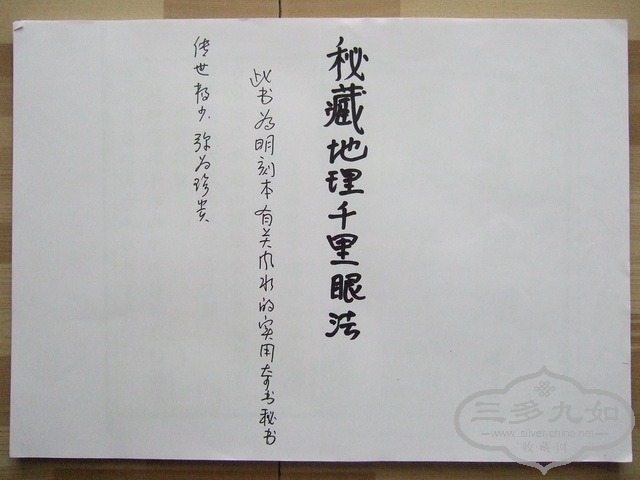 秘藏地理千里眼法
此书为明刻本有关风水的实用奇书秘书
传世极少.弥为珍贵
三多九如
收·藏·网